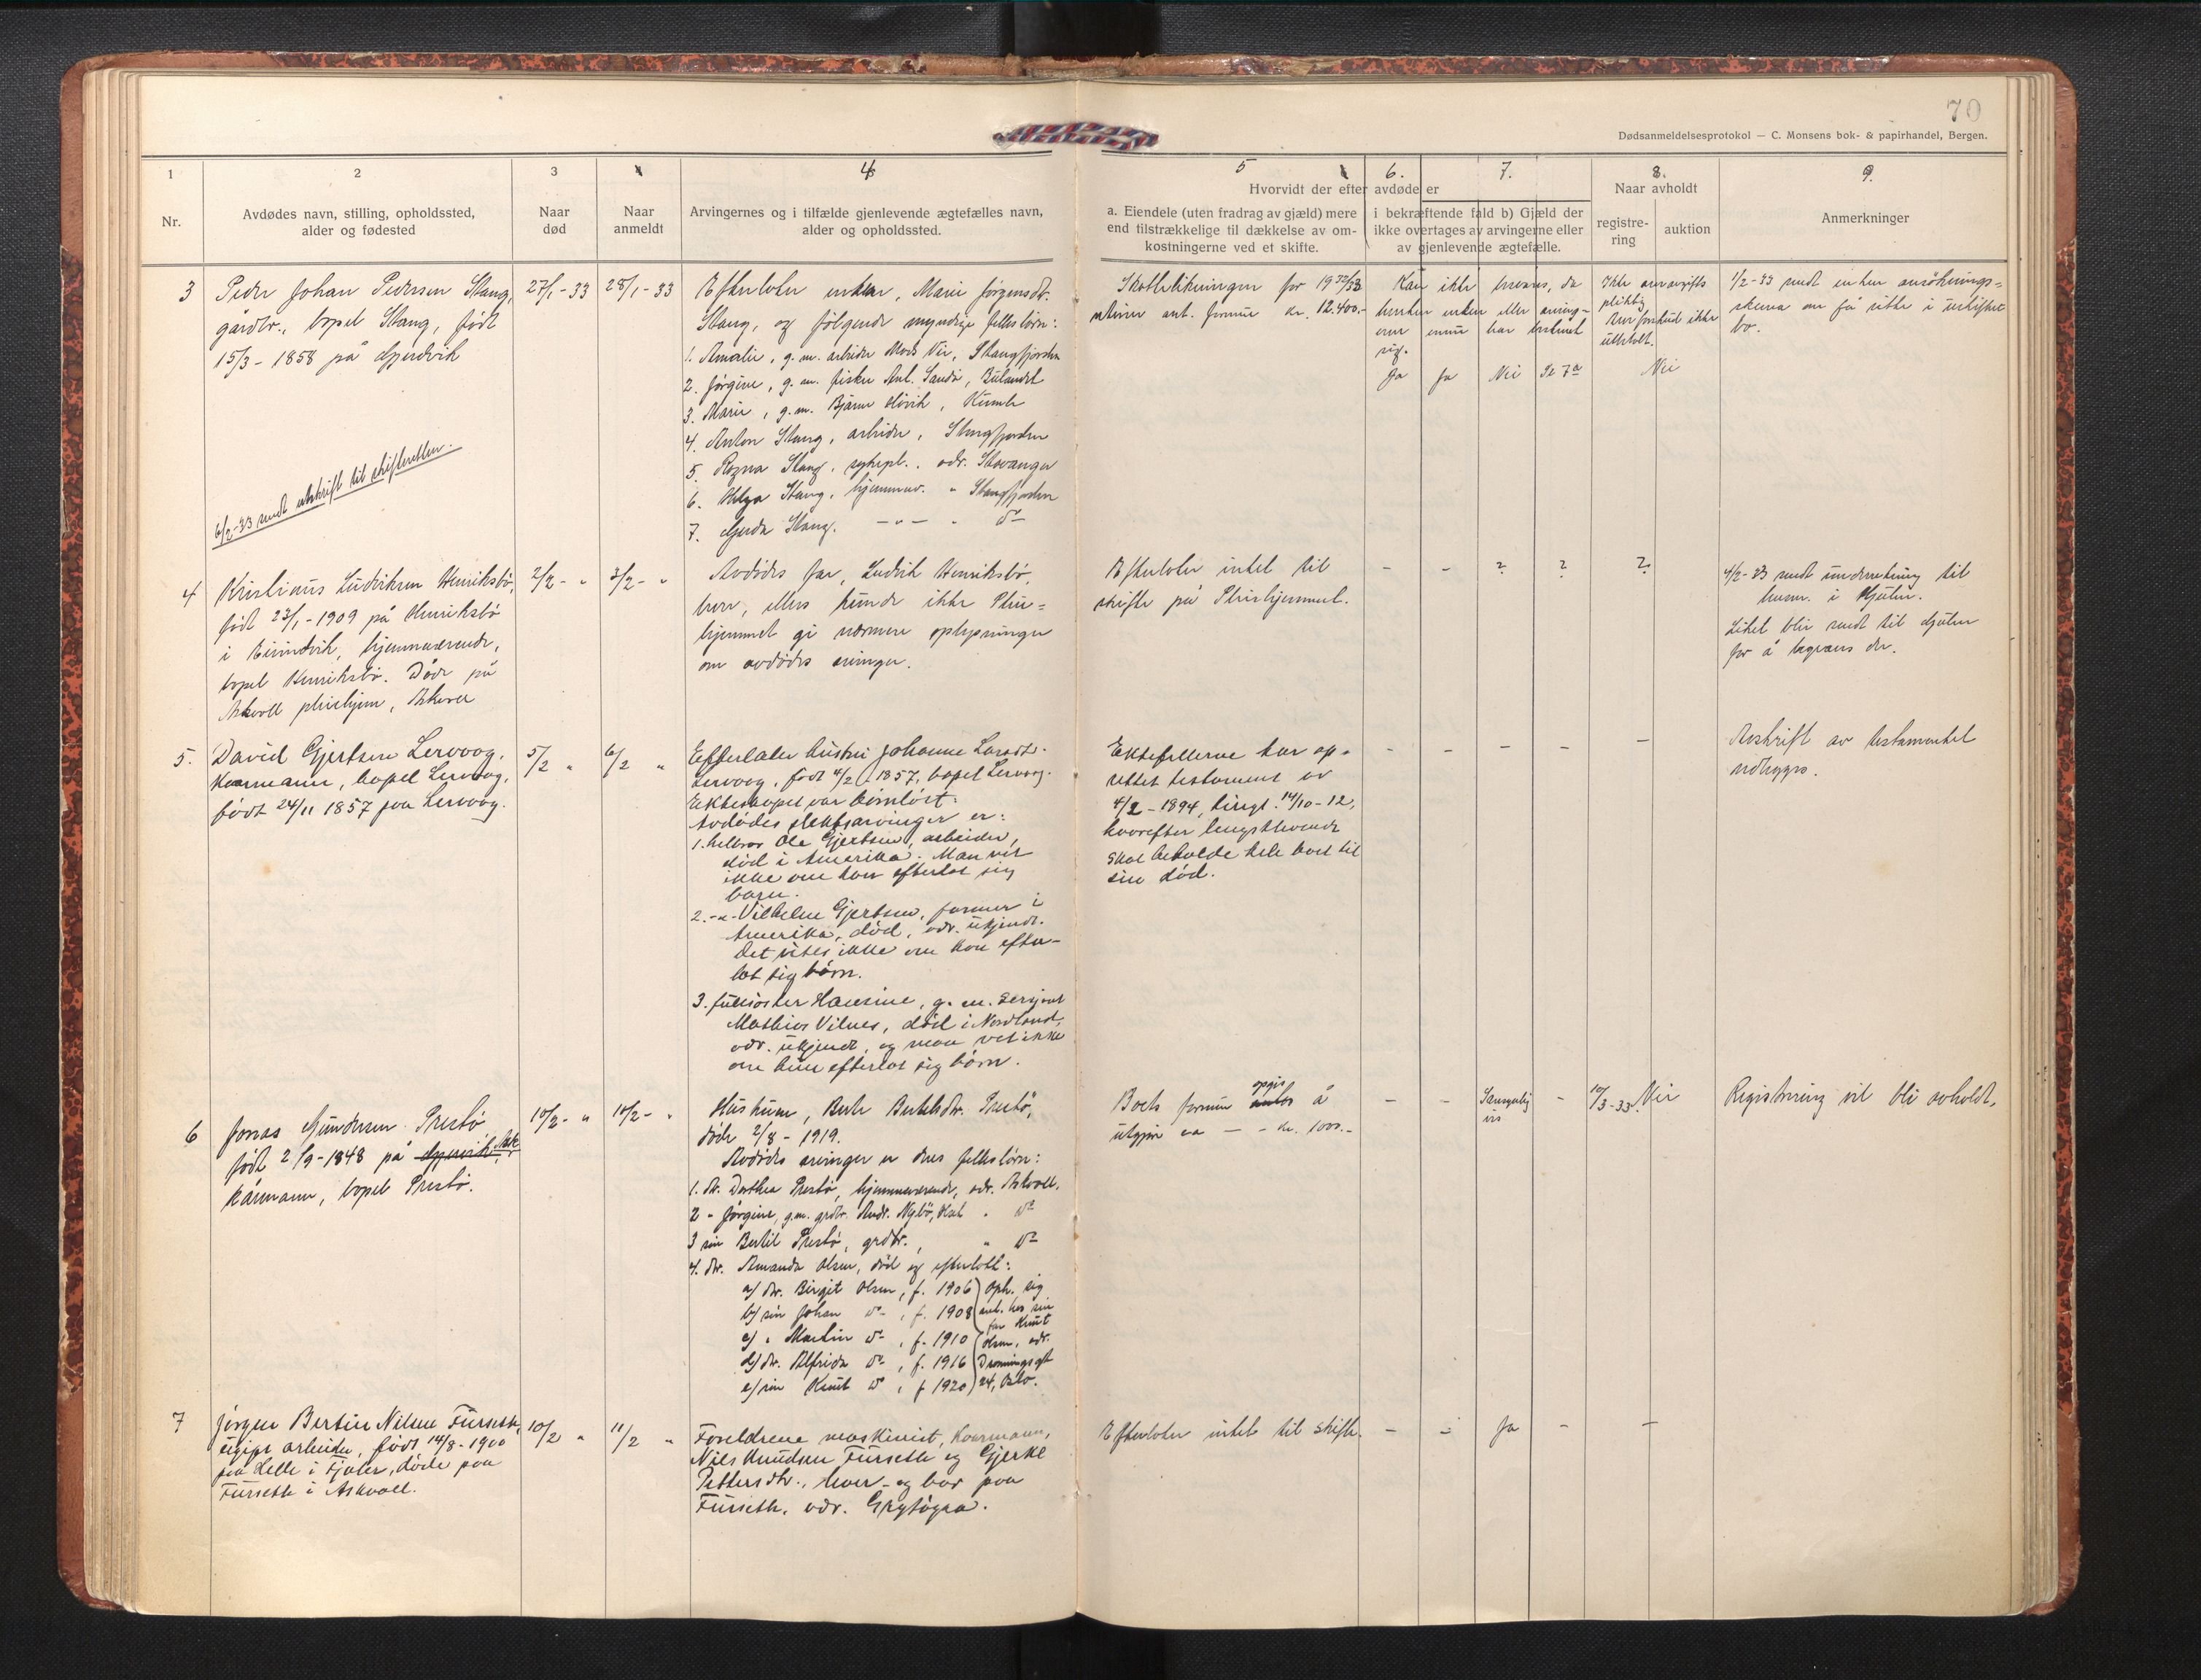 70
Dødsanmeldelsesprotokol — C. Monsens bok- & papirhandel, Bergen.
1
2
3
4
5
6.
7.
8.
9.
Nr.
Avdødes navn, stilling, opholdssted,
alder og fødested
Naar
død
Naar
anmeldt
Arvingernes og i tilfælde gjenlevende ægtefælles navn,
alder og opholdssted.
Hvorvidt der efter avdøde er
a. Eiendele (uten fradrag av gjæld) mere
end tilstrækkelige til dækkelse av om-
kostningerne ved et skifte.
i bekræftende fald b) Gjæld der
ikke overtages av arvingerne eller
av gjenlevende ægtefælle.
Naar avholdt
registre-
ring
auktion
Anmerkninger
3
Peder Johan Pedersen Stang,
gårdbr., bopel Stang, født
15/3 - 1858 på Gjerdvik
6/2-33 sendt utskrift til skifteretten.
27/1 - 33
28/1 - 33
Efterlater enken, Marie Jørgensdtr.
Stang, og følgende myndige fellesbørn:
1. Amalie, g. m. arbeider Mads Vie, Stangfjorden
2. Jørgine, g. m. fisker Ant. Sandø, Bulandet
3. Marie, g. m. Bjarne Høvik,
4. Anton Stang, arbeider, Stangfjorden
5. Ragna Stang, sykepl., adr. Stavanger
6. Helga Stang, hjemmev. " Stangfjorden
7. Gjerda Stang. — " — " do
Skattelikningen for 1932/33
utviser ant. formue kr. 12.400.-
Kan ikke besvares, da
hverken enken eller arving-
erne ennu har erklært
sig.
Ja
Ja
Nei
Se 7a
Nei
Ikke arveavgifts
pliktig
ikke
utbetalt.
1/2-33 sendt enken ansøknings-
skema om få sitte i uskiftet
bo.
4
Kristians Ludviksen Henriksbø,
født 23/1 - 1909 på Henriksbø
i Eivindvik, hjemmeværende,
bopel Henriksbø. Døde på
Askvoll pleiehjem, Askvoll
2/2 - "
3/2 - "
Avdødes far, Ludvik Henriksbø,
lever, ellers kunde ikke Pleie=
hjemmet gi nærmere oplysninger
om avdødes arvinger.
Efterlater intet til
skifte på Pleiehjemmet.
-
-
?
?
?
4/2-33 sendt underretning til
lensm. i Gulen.
Liket blir sendt til Gulen
for å begraves der.
5.
David Gjertsen Lervoog,
Kaarmann, bopel Lervoog,
født 24/11 1857 paa Lervoog.
5/2 "
6/2 "
Efterlater hustru Johanne Larsdtr.
Lervoog, født 4/2 1857, bopel Lervoog.
Ekteskapet var barnløst.
Avdødes slektsarvinger er:
1. helbror Ole Gjertsen, arbeider,
død i Amerika. Man vet
ikke om han efterlot sig
barn.
2. -"- Vilhelm Gjertsen, farmer i
Amerika, død, adr. ukjendt.
Det vites ikke om han efter-
lot sig børn.
3. fullsøster Hansine, g. m. Sersjant
Mathias Vilnes, død i Nordland,
adr. ukjendt, og man vet ikke
om hun efterlot sig børn.
Ektefellerne har op-
rettet testament av
4/2 - 1894, tingl. 14/10 - 12,
hvorefter lengstlevende
skal beholde hele boet til
sin død.
-
-
-
-
-
Avskrift av testamentet
vedlegges.
6
Jonas Gundersen Prestø
født 2/9 - 1848 på Askv.
kårmann, bopel Prestø.
10/2 - "
10/2 - "
Hustruen, Berte Bertelsdtr. Prestø,
døde 2/8 - 1919.
Avdødes arvinger er deres fellesbørn:
1. dtr. Dorthea Prestø, hjemmeværende, adr. Askvoll.
2 " Jørgine, g.m. grdbr. Andr. Nybø, " do
3 søn Bertil Prestø, grdbr., " do
4. dtr. Amanda Olsen, død og efterlatt:
a) dtr. Birgit Olsen, f. 1906
b) søn Johan do , f. 1908
c) " Martin do , f. 1910
d) dtr. Alfrida do , f. 1916
e) søn Knut do , f 1920
Oph. sig
ant. hos sin
far Knut
Olsen, adr.
Dronningsgt
24, Oslo.
Boets formue opgis å
utgjøre ca — - kr. 1000.-
-
-
Sansynlig
vis
-
10/3-33.
Nei
Registrering vil bli avholdt.
7
Jørgen Bertin Nilsen Furseth,
ugift arbeider, født 14/8 - 1900
paa Helle i Fjaler, døde paa
Furseth i Askvoll.
10/2 "
11/2 "
Foreldrene maskinist, kaarmann,
Nils Knudsen Furseth og Gjerke
Pettersdtr., lever og bor paa
Furseth, adr. Grytøyra.
Efterlater intet til skifte.
-
-
Ja
-
-